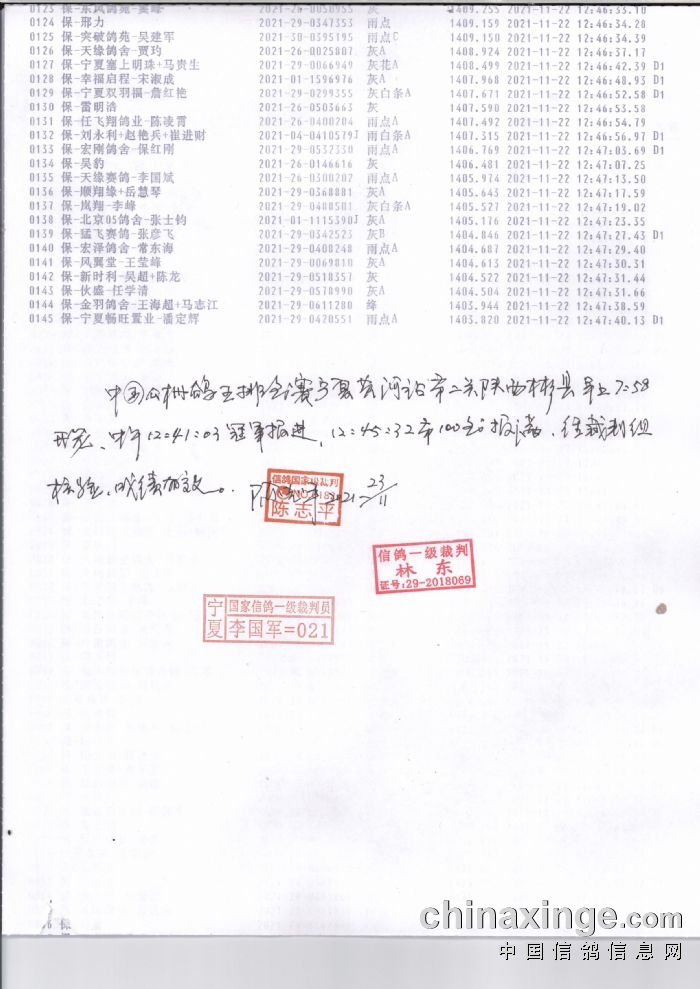 0123 保-东风鸽苑-奕峰 2021-26-0050955 灰 1409.255 2021-11-22 12:46:33.10
0124 保-邢力 2021-29-0347353 雨点 1409.159 2021-11-22 12:46:34.20
0125 保-突破鸽苑-吴建军 2021-30-0395195 雨点C 1409.150 2021-11-22 12:46:34.39
0126 保-天缘鸽舍-贾玓 2021-26-0025807 灰A 1408.924 2021-11-22 12:46:37.17
0127 保-宁夏塞上明珠+马贵生 2021-29-0066949 灰花A 1408.499 2021-11-22 12:46:42.39 D1
0128 保-幸福启程-宋淑成 2021-01-1596976 灰A 1407.968 2021-11-22 12:46:48.93 D1
0129 保-宁夏双羽福-詹红艳 2021-29-0299355 灰白条A 1407.671 2021-11-22 12:46:52.58 D1
0130 保-雷明浩 2021-26-0503663 灰 1407.590 2021-11-22 12:46:53.58
0131 保-任飞翔鸽业-陈凌霄 2021-26-0400204 雨点A 1407.492 2021-11-22 12:46:54.79
0132 保-刘永利+赵艳兵+崔进财 2021-04-0410579J 雨白条A 1407.315 2021-11-22 12:46:56.97 D1
0133 保-宏刚鸽舍-保红刚 2021-29-0532330 雨点A 1406.769 2021-11-22 12:47:03.69 D1
0134 保-吴豹 2021-26-0146616 灰 1406.481 2021-11-22 12:47:07.25
0135 保-天缘赛鸽-李国斌 2021-26-0300202 雨点A 1405.974 2021-11-22 12:47:13.50
0136 保-顺翔缘+岳慧琴 2021-29-0368881 灰A 1405.643 2021-11-22 12:47:17.59
0137 保-岚翔-李峰 2021-29-0408501 灰白条A 1405.527 2021-11-22 12:47:19.02
0138 保-北京05鸽舍-张士钧 2021-01-1115390J 灰A 1405.176 2021-11-22 12:47:23.35
0139 保-猛飞赛鸽-张彦飞 2021-29-0342523 灰B 1404.846 2021-11-22 12:47:27.43 D1
0140 保-宏泽鸽舍-常东海 2021-29-0408248 雨点A 1404.687 2021-11-22 12:47:29.40
0141 保-风翼堂-王莹峰 2021-29-0069810 灰A 1404.613 2021-11-22 12:47:30.31
0142 保-新时利-吴超+陈龙 2021-29-0518357 灰 1404.522 2021-11-22 12:47:31.44
0143 保-伙盛-任学清 2021-29-0578990 灰A 1404.504 2021-11-22 12:47:31.66
0144 保-金羽鸽舍-王海超+马志江 2021-29-0611280 绛 1403.944 2021-11-22 12:47:38.59
0145 保-宁夏畅旺置业-潘定辉 2021-29-0420551 雨点A 1403.820 2021-11-22 12:47:40.13 D1
中国公棚鸽王排名赛宁夏黄河站第二关陕西彬县早上7:58
开笼，中午12:41:03冠军报进，12:45:32第100名报满，经裁判组
检验，成绩有效。 陈志平 2021 23/11
信鸽国家级裁判
陈志平
信鸽一级裁判
林东
证号:29-2018069
宁夏 国家信鸽一级裁判员
李国军=021
保
chinaxinge.com
中国信鸽信息网